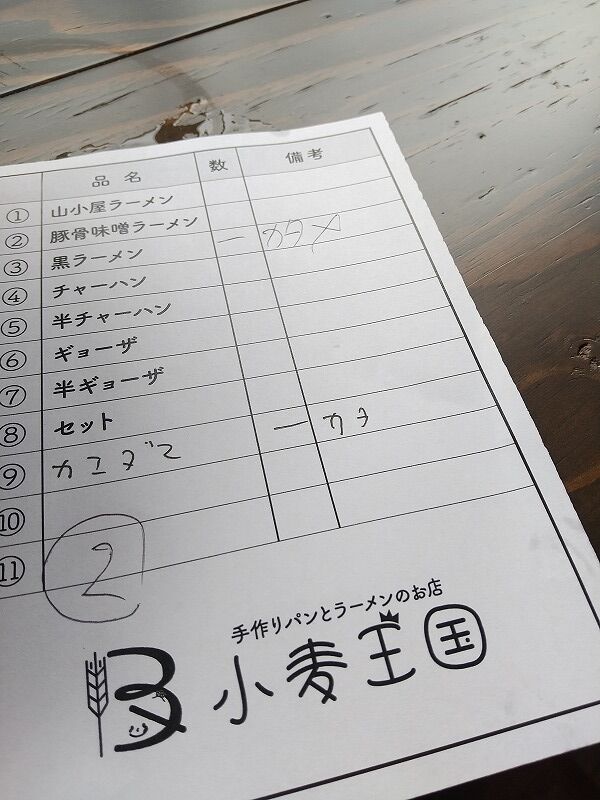 品名 数 備考
① 山小屋ラーメン
② 豚骨味噌ラーメン
③ 黒ラーメン 一 カタメ
④ チャーハン
⑤ 半チャーハン
⑥ ギョーザ
⑦ 半ギョーザ
⑧ セット
⑨ カエダマ 一 カタ
⑩
⑪
②
手作りパンとラーメンのお店
小麦王国